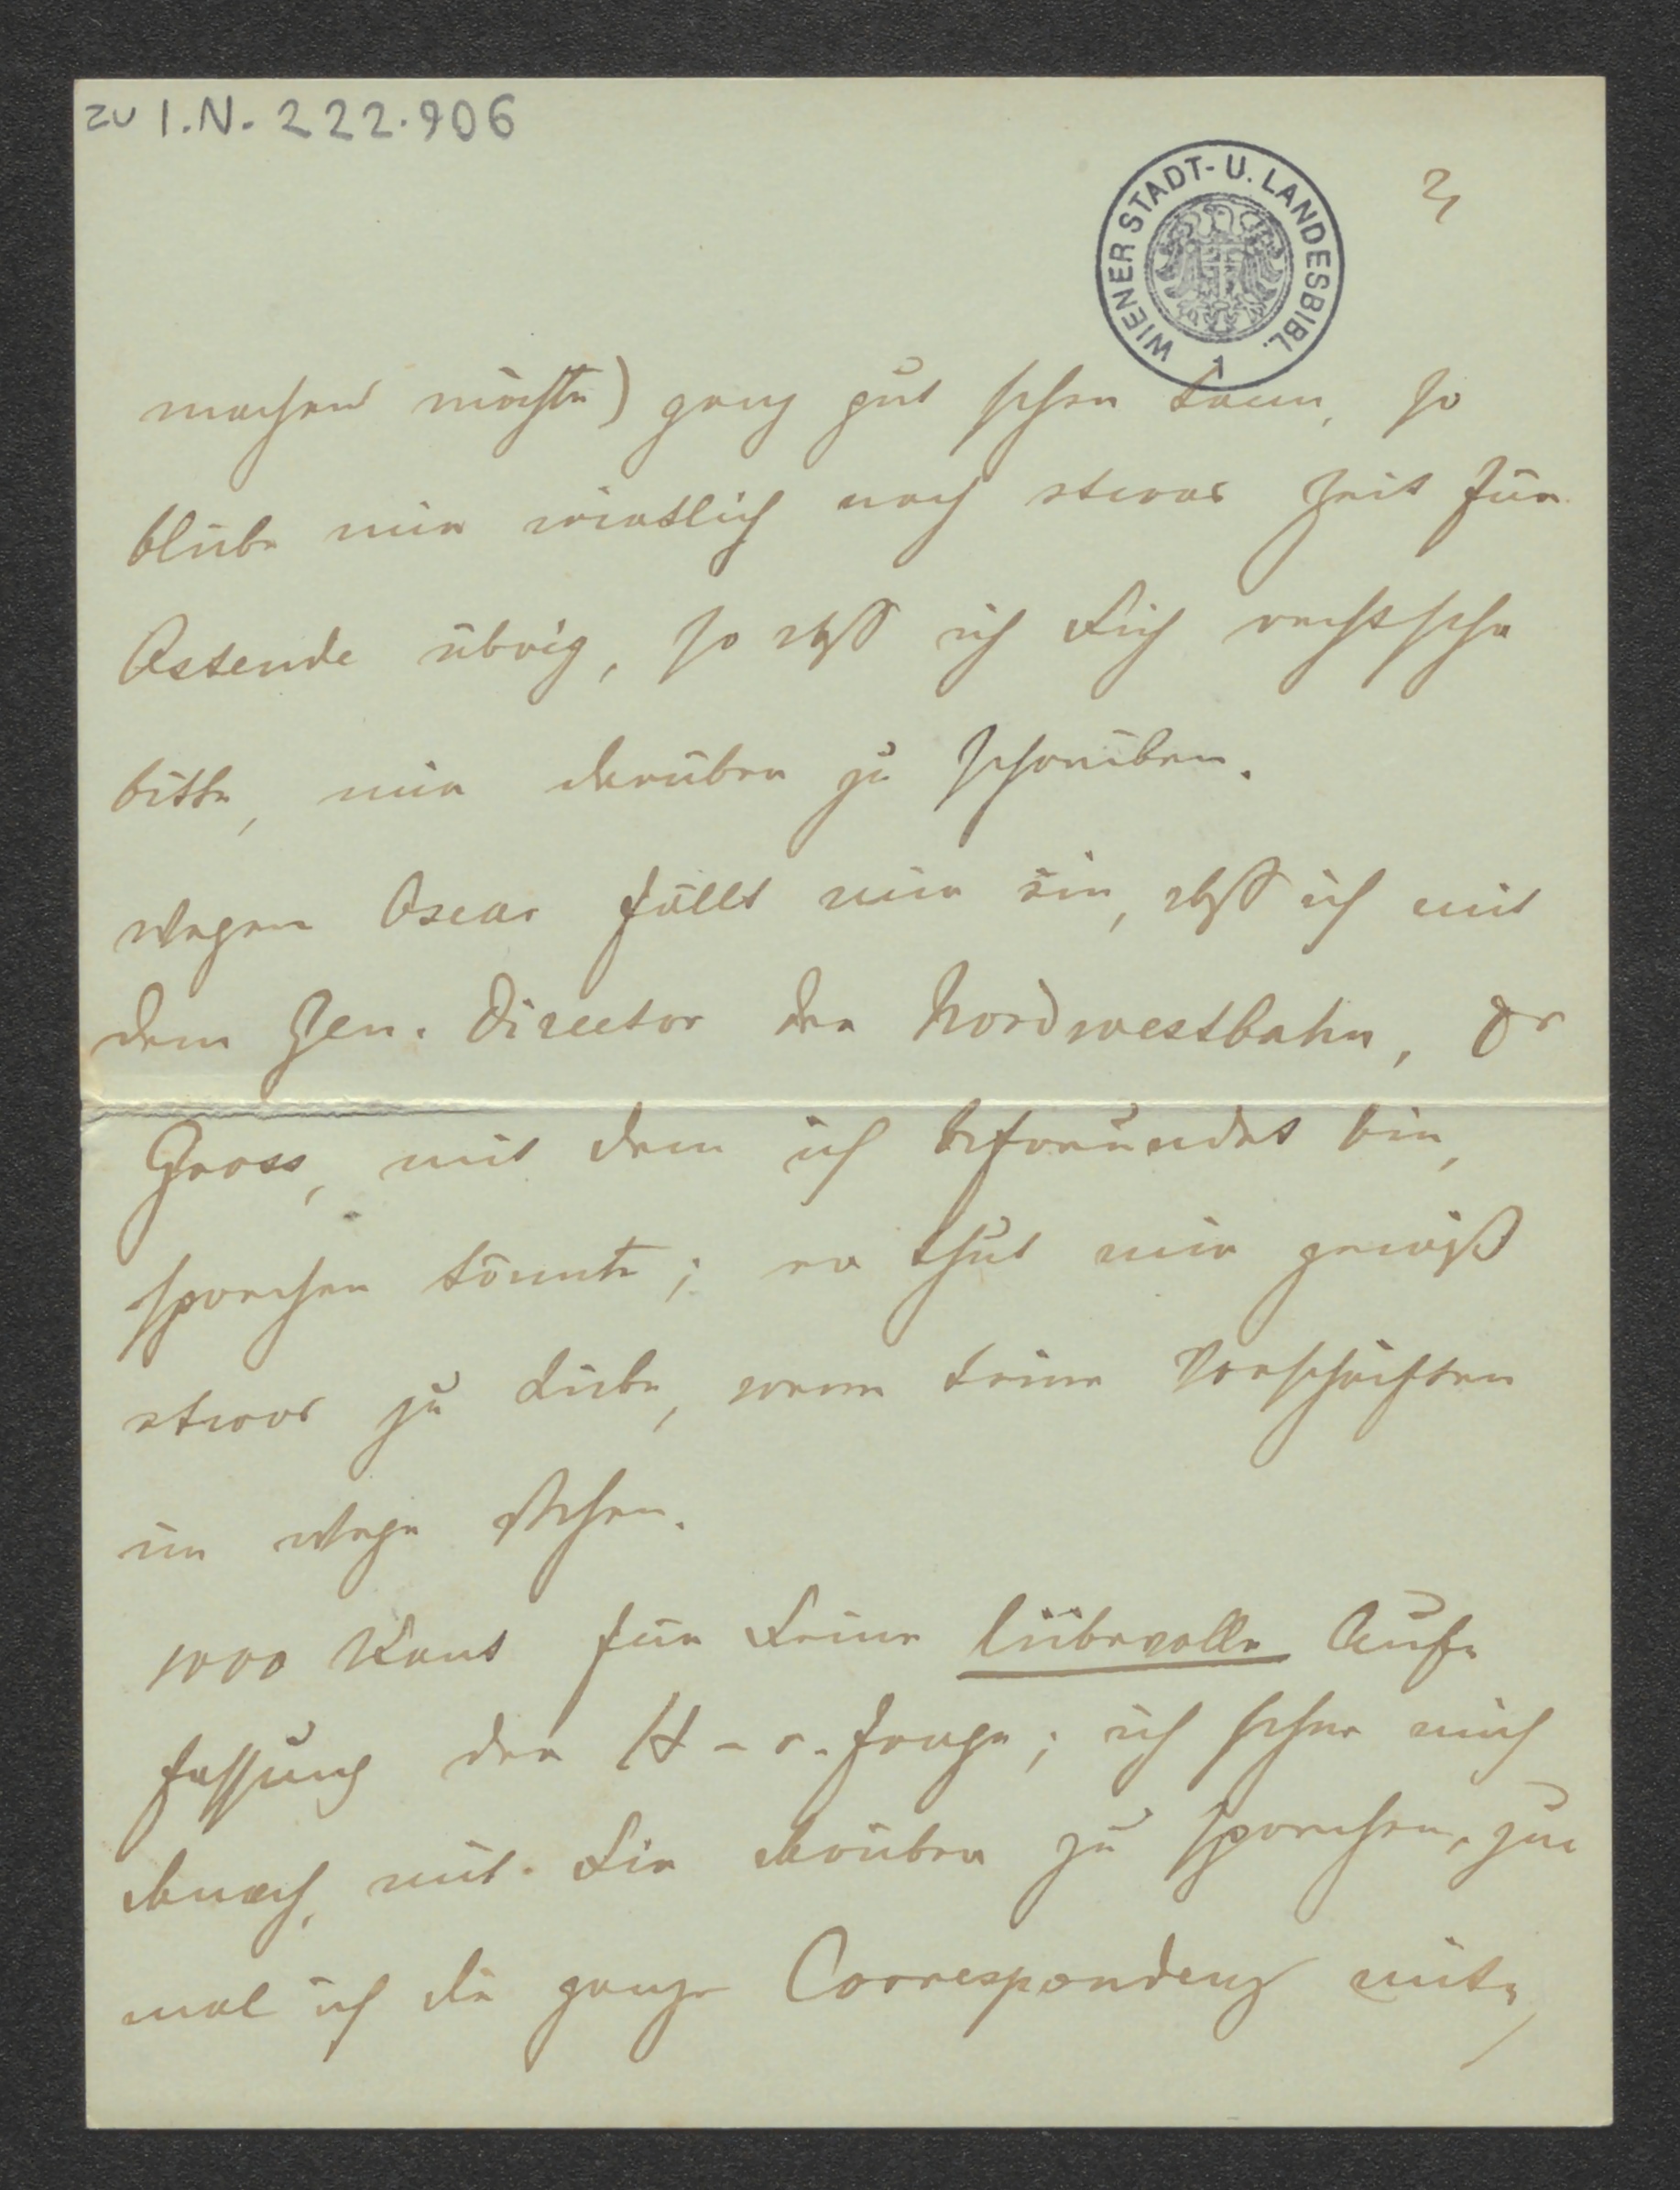 zu I.N. 222.906
WIENER STADT- U. LANDESBIBL.
1
2
machen möchte) ganz gut sehen kann, so
bliebe mir wirklich noch etwas Zeit für
Ostende übrig, so daß ich Dich recht sehr
bitte, mir darüber zu schreiben.
Wegen Oscar fällt mir ein, daß ich mit
dem Gen. Director der Nordwestbahn, Dr
Gross, mit dem ich befreundet bin,
sprechen könnte; er thut mir gewiß
etwas zu Liebe, wenn keine Vorschriften
im Wege stehen.
1000 Dank für Deine liebevolle Auf-
fassung der H-r. Frage; ich sehne mich
danach, mit Dir darüber zu sprechen, zu-
mal ich die ganze Correspondenz mit-